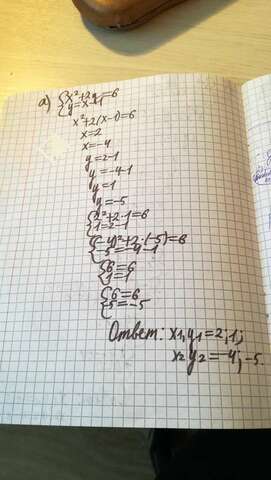 а) {x²+2y=6
{y=x-1
x²+2(x-1)=6
x=2
x=-4
y=2-1
y=-4-1
y=1
y=-5
{2²+2·1=6
{1=2-1
{(-4)²+2·(-5)=6
{-5=-4-1
{6=6
{1=1
{6=6
{-5=-5
Ответ: x₁,y₁=2;1;
x₂y₂=-4;-5.